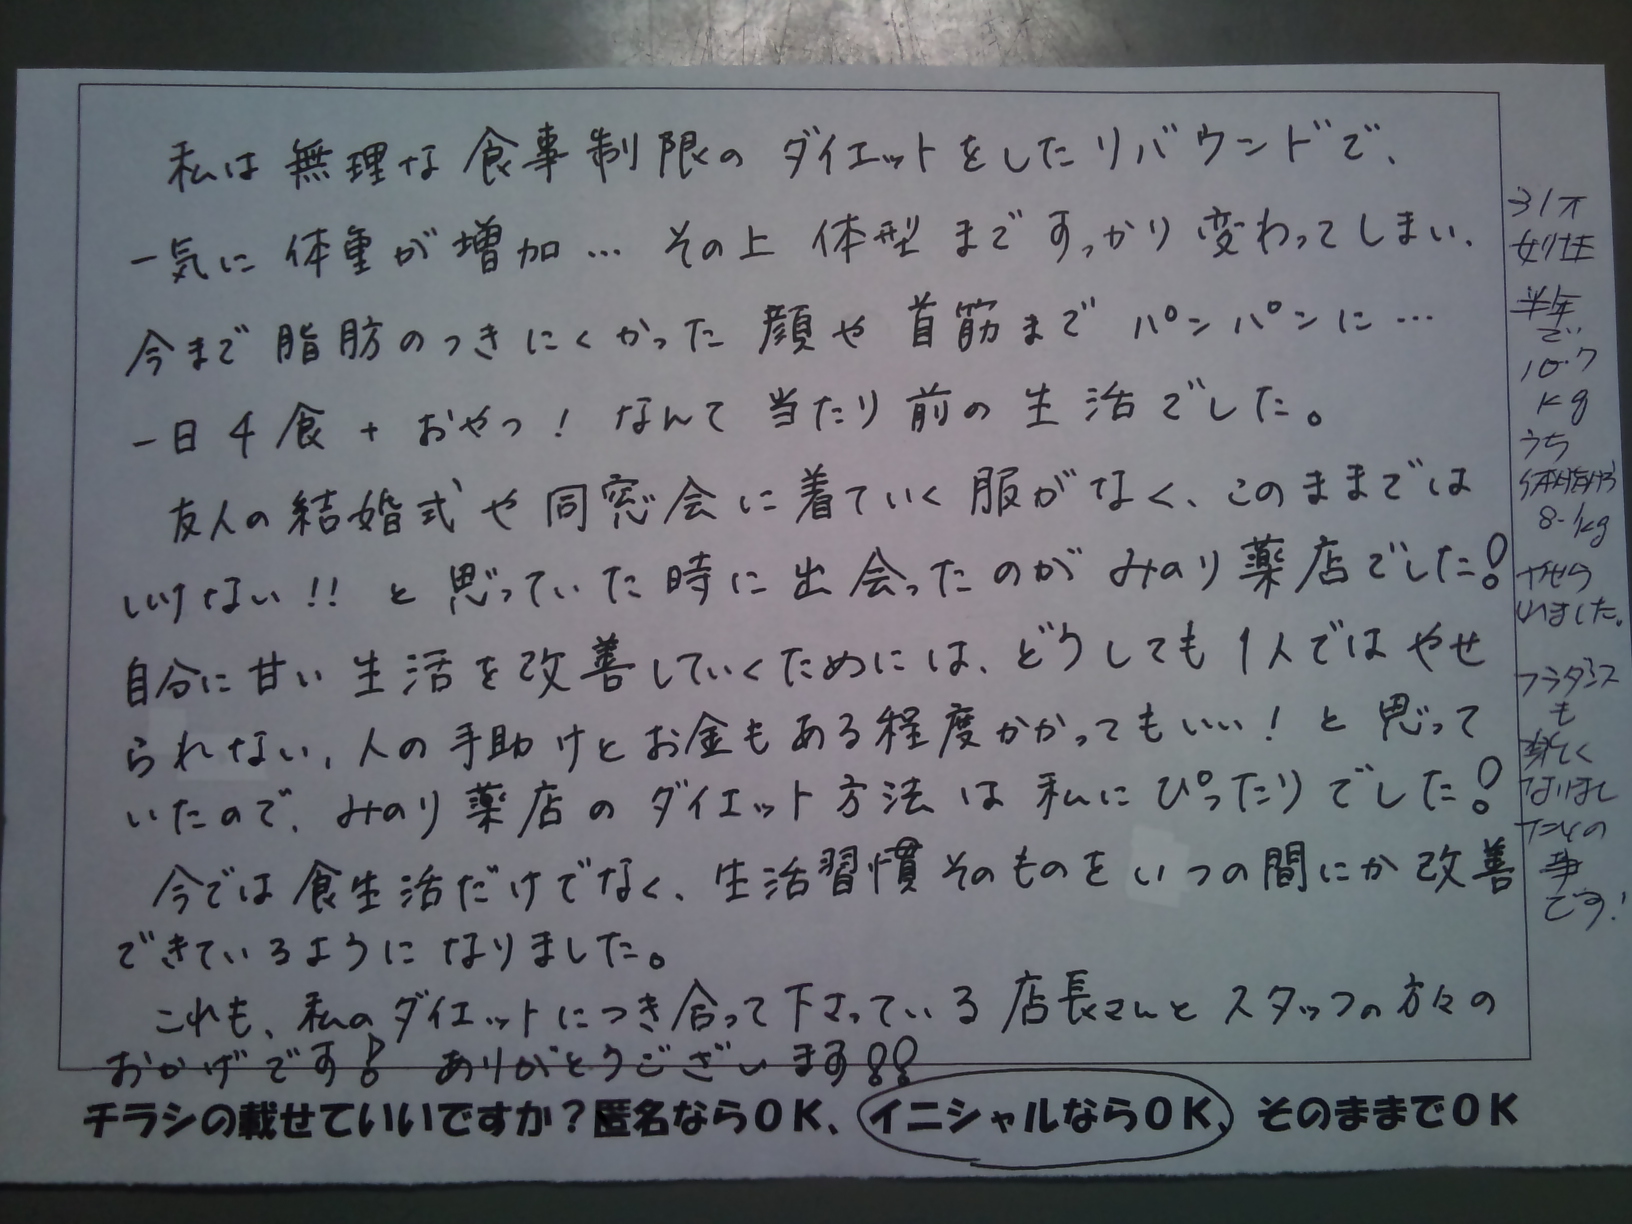 私は無理な食事制限のダイエットをしたリバウンドで、
一気に体重が増加… その上 体型まですっかり変わってしまい、
今まで脂肪のつきにくかった顔や首筋までパンパンに…
一日4食+おやつ! なんて当たり前の生活でした。
友人の結婚式や同窓会に着ていく服がなく、このままでは
いけない!! と思っていた時に出会ったのがみのり薬店でした!
自分に甘い生活を改善していくためには、どうしても1人ではやせ
られない、人の手助けとお金もある程度かかってもいい! と思って
いたので、みのり薬店のダイエット方法は私にぴったりでした!
今では食生活だけでなく、生活習慣そのものをいつの間にか改善
できているようになりました。
これも、私のダイエットにつき合って下さっている店長さんとスタッフの方々の
おかげです! ありがとうございます!!
チラシの載せていいですか?匿名ならOK、イニシャルならOK、そのままでOK
31才
女性
半年
で
10.7
kg
うち
体脂肪
8.1kg
やせら
いました。
フラダンス
も
楽しく
なりまし
たとの
事
です!